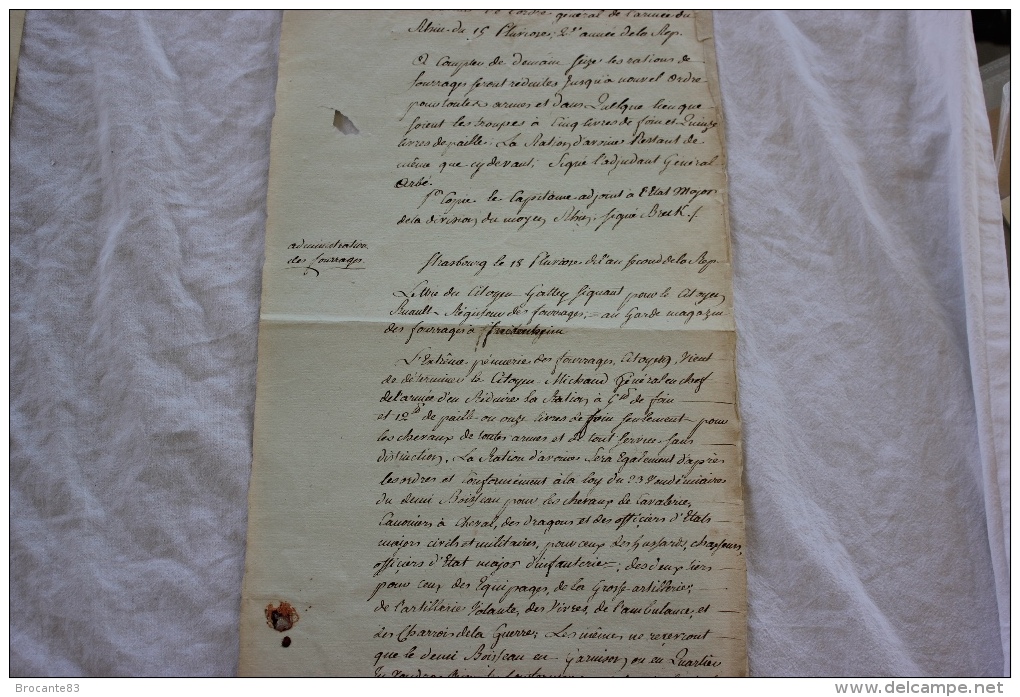 général de l'armée du
Rhin du 15 Pluviose, 2e année de la Rep.
A Compter de demain Seize les rations de
fourrages seront réduites Jusqu'à nouvel Ordre
pour toutes armes et dans Quelque lieu que
soient les troupes à Cinq livres de foin et Quinze
livres de paille. La Ration d'avoine Restant de
même que cy devant; Signé l'adjudant Général
Orbé.
pr Copie le Capitaine adjoint à l'Etat Major
de la division du moyen Rhin. Signé Breck./.
administration
des fourrages
Strasbourg le 18 Pluviose de l'an second de la Rep.
Lettre du Citoyen Galley Signant pour le Citoyen
Ruault Régisseur des fourrages, au Garde magazin
des fourrages à
L'Extrême pénurie des fourrages, Citoyen, Vient
de déterminer le Citoyen Michaud Général en chef
de l'armée d'en Réduire la Ration à de foin
et 12 de paille ou onze livres de foin seulement pour
les chevaux de toutes armes et de tout service sans
distinction. La Ration d'avoine Sera Egalement d'après
les ordres et Conformément à la loy du 23 Vendémiaire
du demi Boisseau pour les chevaux de Cavalerie,
Canoniers à Cheval, des dragons et des officiers d'Etats
majors civils et militaires, pour ceux des hussards, chasseurs,
officiers d'Etat major d'infanterie, des deux tiers
pour ceux des Equipages, de la Grosse artillerie,
de l'artillerie Volante, des Vivres, de l'ambulance, et
des Charrois de la Guerre; Les mêmes ne recevront
que le demi Boisseau en Garnison, ou en Quartier
Brocante83
delcampe.net